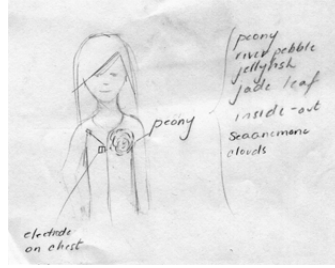 peony
river pebble
jellyfish
jade leaf
inside-out
Seaanemone
clouds
peony
electrode
on chest